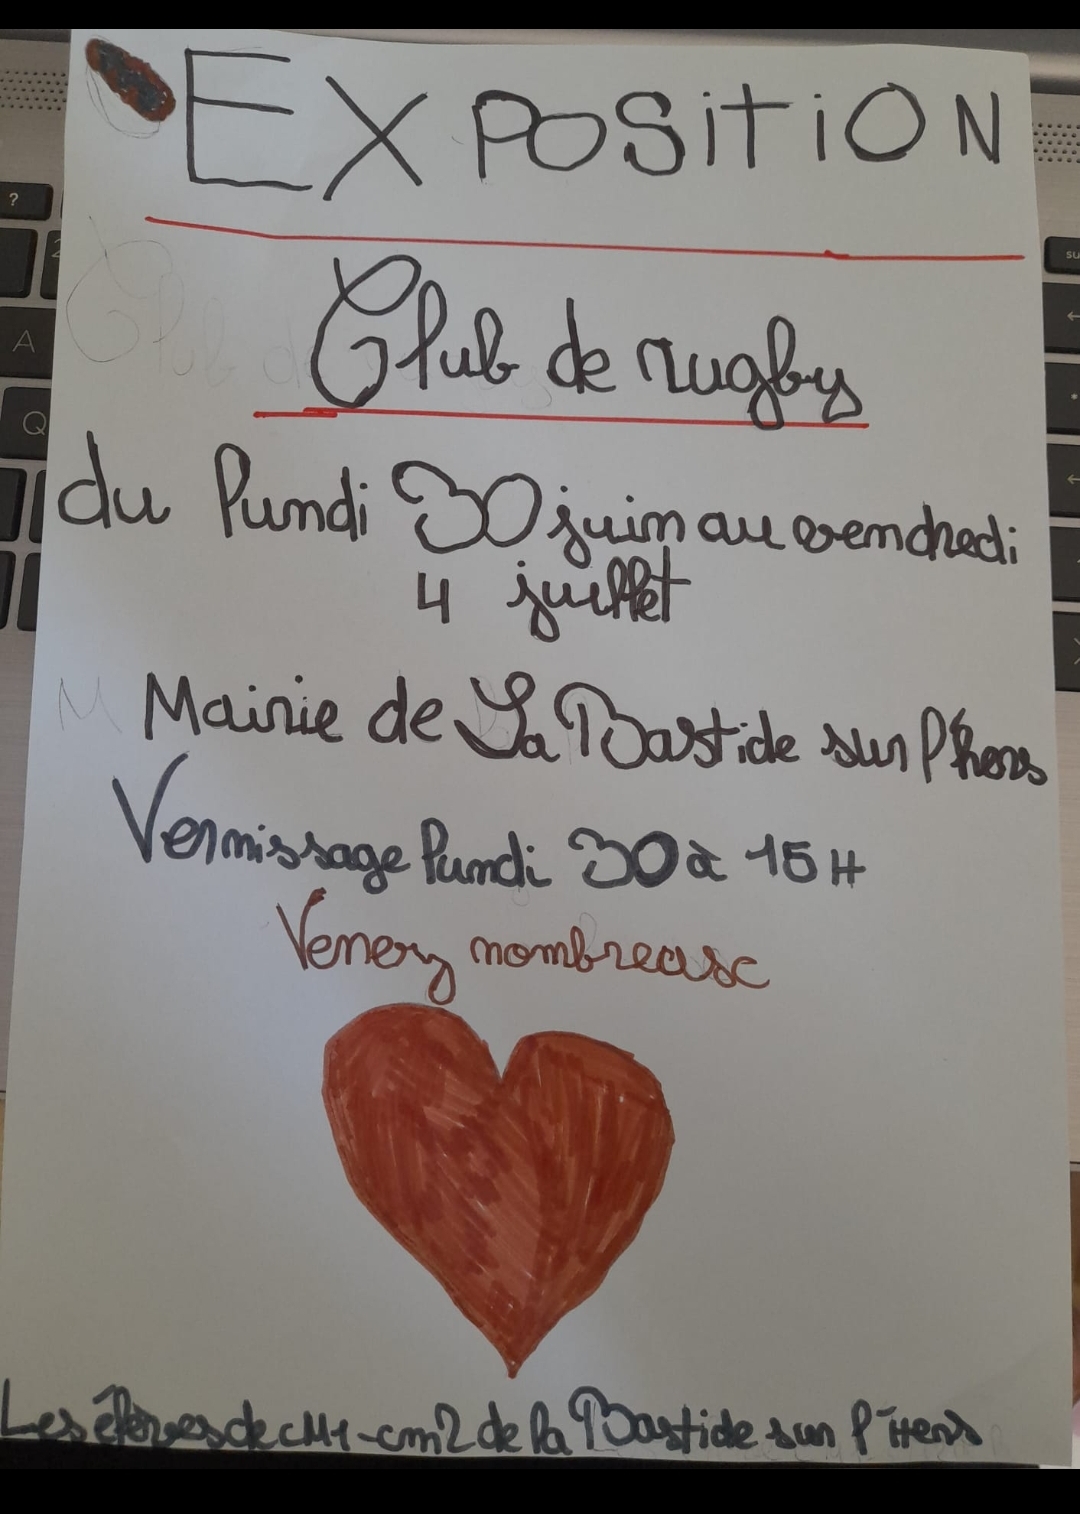 EXPOSITION
Club de rugby
du lundi 30 juin au vendredi
4 juillet
Mairie de La Bastide sur l'hers
Vernissage lundi 30 à 15H
Venez nombreuse
Les élèves de CM1-cm2 de la Bastide sur l'Hers
?
A
Q